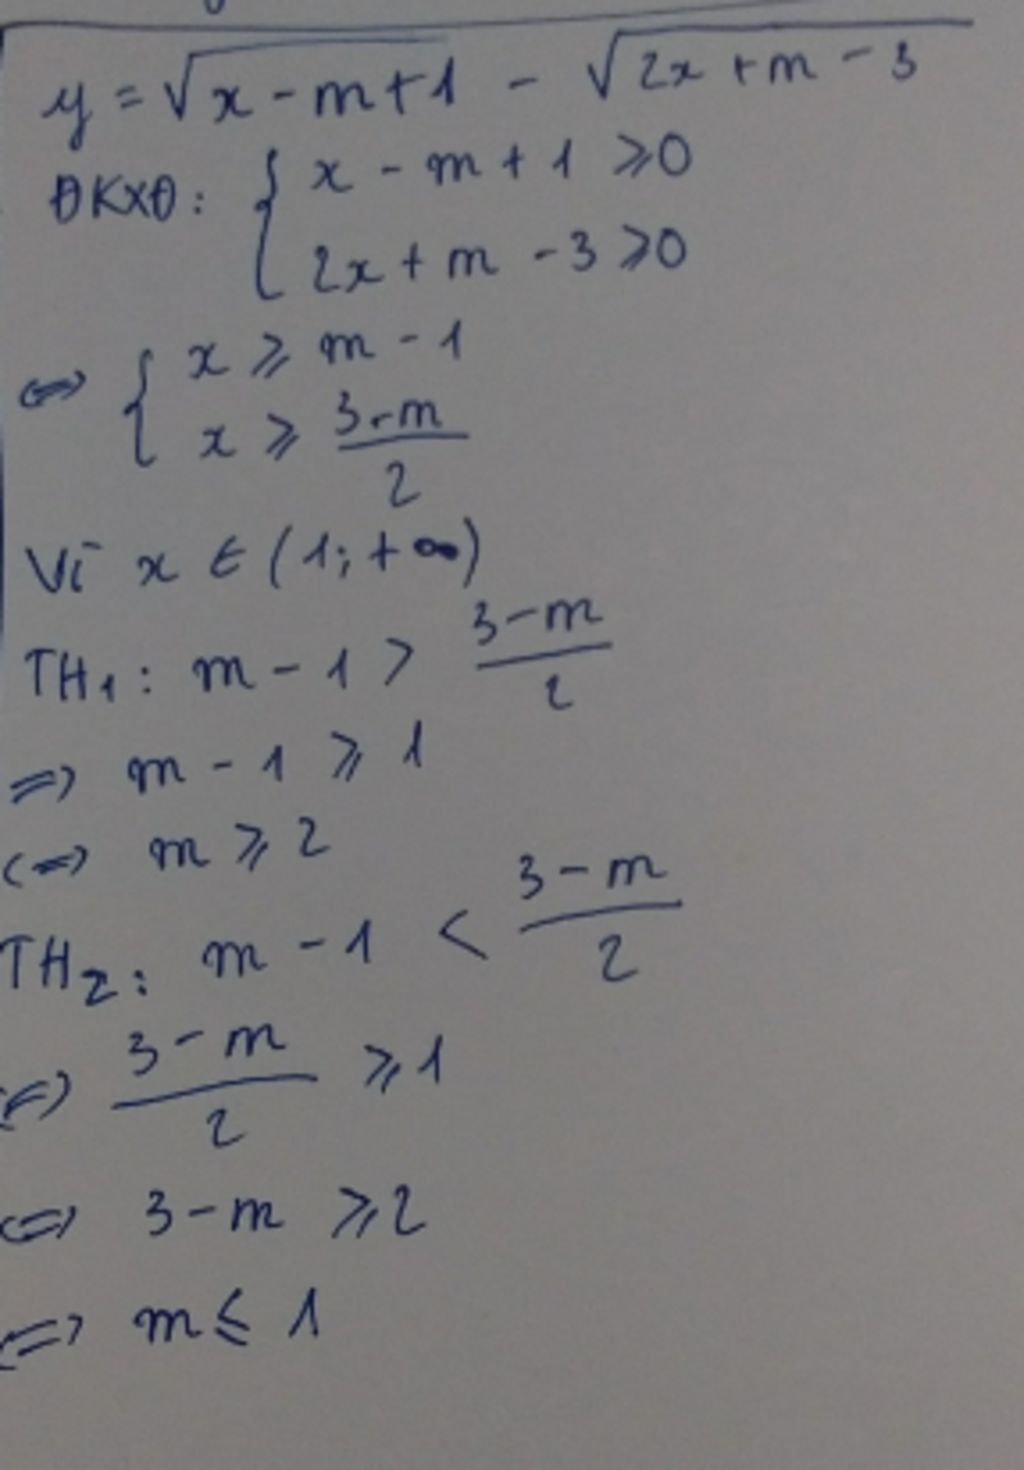 y = √(x - m + 1) - √(2x + m - 3)
ĐKXĐ: { x - m + 1 ⩾ 0
2x + m - 3 ⩾ 0
⇔ { x ⩾ m - 1
x ⩾ (3 - m)/2
Vì x ∈ (1; +∞)
TH1: m - 1 > (3 - m)/2
⇒ m - 1 ⩾ 1
⇔ m ⩾ 2
TH2: m - 1 < (3 - m)/2
⇔ (3 - m)/2 ⩾ 1
⇔ 3 - m ⩾ 2
⇔ m ⩽ 1